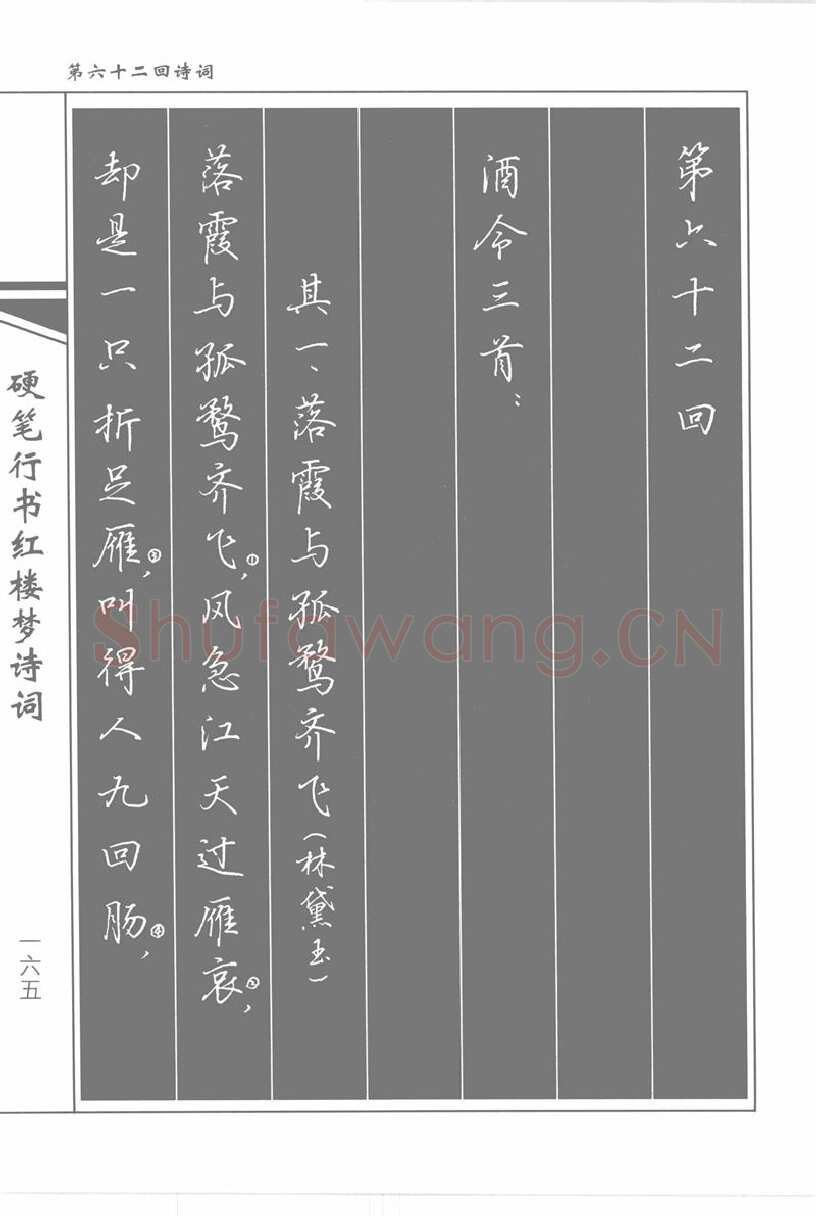 第六十二回诗词
第六十二回
酒令三首：
其一、落霞与孤鹜齐飞（林黛玉）
落霞与孤鹜齐飞①，风急江天过雁哀②，
却是一只折足雁③，叫得人九回肠④，
硬笔行书红楼梦诗词
一六五
Shufawang.CN